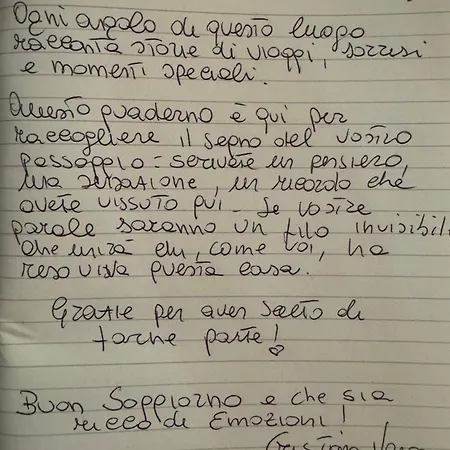 Ogni angolo di questo luogo
racconta storie di viaggi, sorrisi
e momenti speciali.
Questo quaderno è qui per
raccogliere il segno del vostro
passaggio: scrivete un pensiero,
una sensazione, un ricordo che
avete vissuto qui. Le vostre
parole saranno un filo invisibil
che unirà chi, come voi, ha
reso viva questa casa.
Grazie per aver scelto di
farne parte!
Buon Soggiorno e che sia
ricco di Emozioni!
Cristina